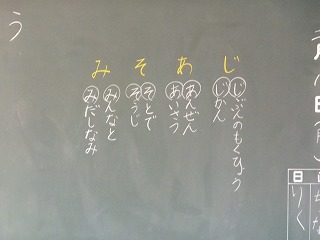 みそあじ
じぶんのもくひょう
じかん
あんぜん
あいさつ
そとで
そうじ
みんなと
みだしなみ
う
日
りく